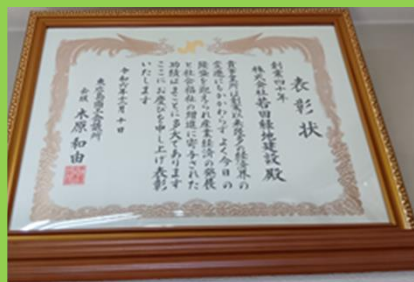 表彰状
創業四十年
株式会社若田緑地建設 殿
貴事業所は創業以来幾多の経済界の
変遷にもかかわらず よく今日の
隆盛を迎えられ産業経済の発展
と社会福祉の増進に寄与された
功績はまことに多大であります
ここにお慶びを申し上げ表彰
いたします
令和六年十一月十日
商工会議所
会頭 木原和由